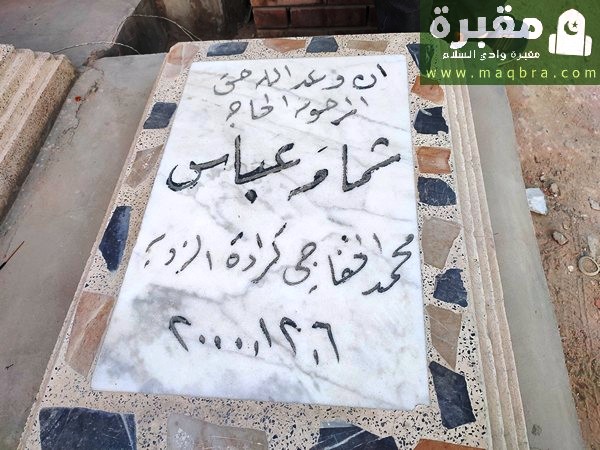 مقبرة
مقبرة وادي السلام
www.maqbra.com
ان وعد الله حق
المرحوم الحاج
عباس
محمد الخفاجي كرادة
٢٠٠٠.١٢.٦